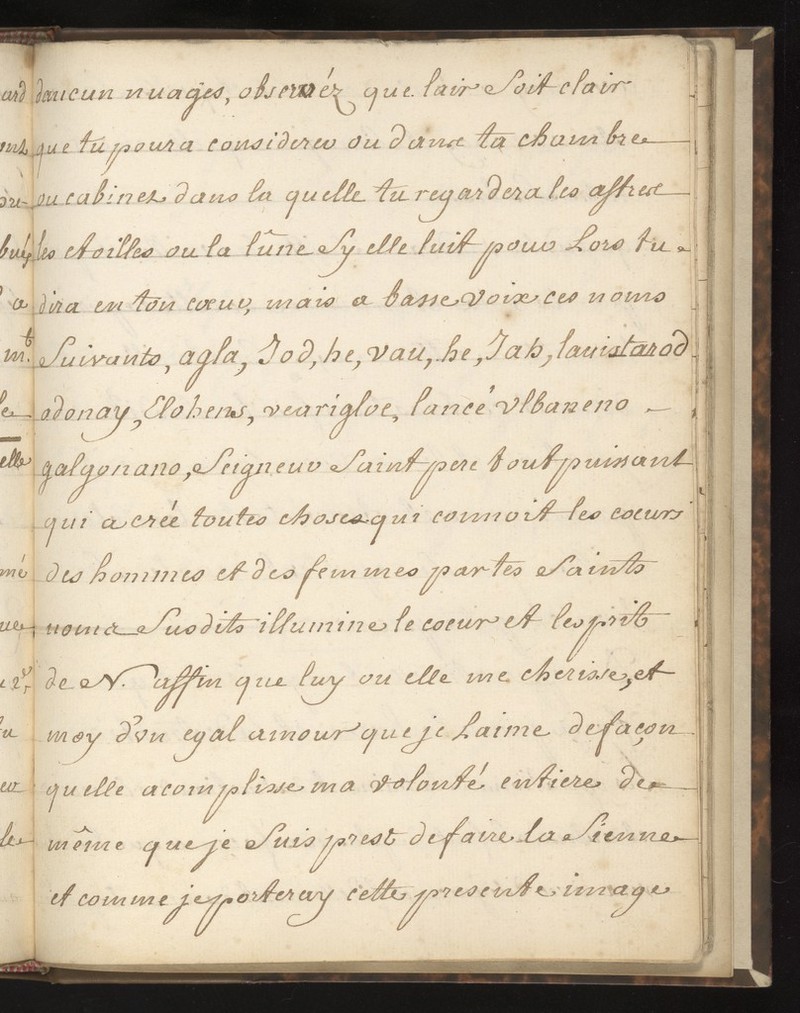 daucun nuages, observéz que lair Soit clair
que tu poura considerer ou dans ta chambre
ou cabinet dans la quelle tu regardera les astres
les etoilles ou la lûne Sy elle luit pour Lors tu
dira en ton cœur, mais a basse voix ces noms
Suivants, agla, Jod, he, vau, he, Jah,
odonay, Elohens, vearigloe, lancé vlbaneno
galgonano, Seigneur Saint pere tout puissant
qui a creé toutes choses qui connoit les coeurs
des hommes et des femmes par tes Saints
noms Susdits illumine le coeur et lesprit
de N. affin que luy ou elle me cherisse, et
moy d'vn egal amour que je Laime de façon
quelle acomplisse ma volonté entiere de
même que je Suis prest de faire la Sienne
et comme je porteray cette presente image